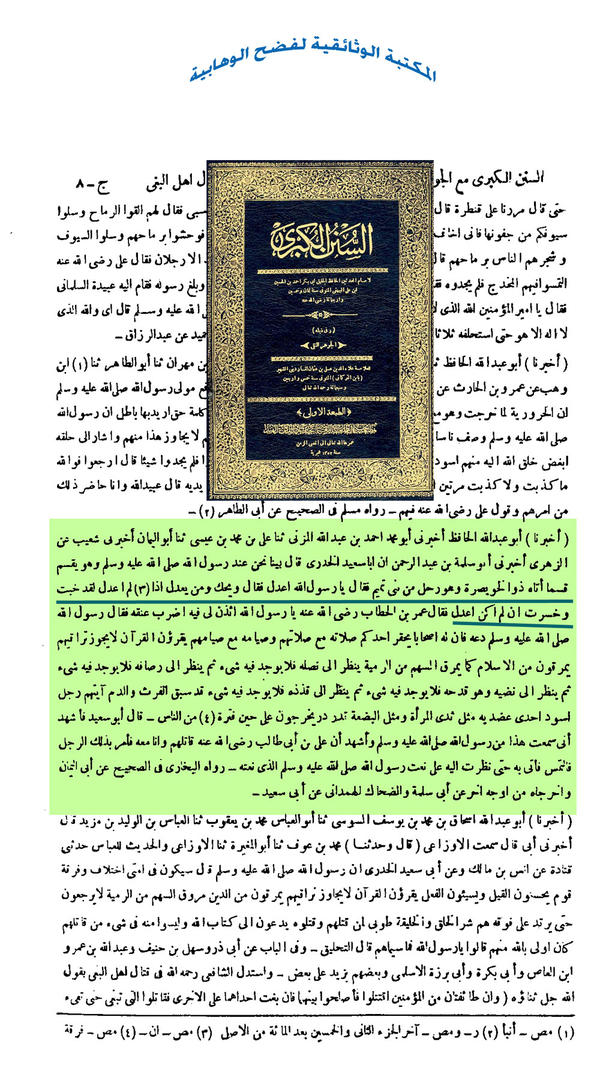 المكتبة الوثائقية لفضح الوهابية
السنن الكبرى مع الجو
ل اهل البغى
ج - ٨
حتى قال مررنا على قنطرة قال
سبى فقال لهم القوا الرماح وسلوا
سيوفكم من جفونها فانى اخاف
فوحشوا برماحهم وسلوا السيوف
و شجرهم الناس برماحهم قا
الا رجلان فقال على رضى الله عنه
التمسوا فيهم المخدج فلم يجدوه فقا
وبلغ رسوله فقام اليه عبيدة السلمانى
فقال يا امير المؤمنين الله الذى لا
الله عليه وسلم قال اى والله الذى
لا اله الا هو حتى استحلفه ثلاثا
حميد عن عبدالرزاق -
( أخبرنا ) أبو عبدالله الحافظ ثنا
بن مهران ثنا أبو الطاهر ثنا (١) ابن
وهب عن عمرو بن الحارث عن
فع مولى رسول الله صلى الله عليه وسلم
ان الحرورية لما خرجت وهو مع
كلمة حق اريد بها باطل ان رسول الله
صلى الله عليه وسلم وصف ناسا
لا يجاوز هذا منهم واشار الى حلقه
ابغض خلق الله اليه منهم اسود
فلم يجدوا شيئا قال ارجعوا فوالله
ما كذبت ولا كذبت مرتين ا
يديه قال عبيدالله وانا حاضر ذلك
من امرهم وقول على رضى الله عنه فيهم - رواه مسلم فى الصحيح عن أبى الطاهر (٢) -
السنن الكبرى
لامام المحدثين الحافظ الجليل ابى بكر احمد بن الحسين
ابن على البيهقى المتوفى سنة ثمان وخمسين
واربعمائة رضى الله عنه
﴿ وفى ذيله ﴾
﴿ الجوهر النقى ﴾
﴿ الطبعة الاولى ﴾
( أخبرنا ) أبو عبدالله الحافظ أخبرنى أبو محمد احمد بن عبدالله المزنى ثنا على بن محمد بن عيسى ثنا أبو اليمان أخبرنى شعيب عن
الزهرى أخبرنى أبو سلمة بن عبد الرحمن ان اباسعيد الخدرى قال بينا نحن عند رسول الله صلى الله عليه وسلم وهو يقسم
قسما أتاه ذو الخويصرة وهو رجل من بنى تميم فقال يا رسول الله اعدل فقال ويحك ومن يعدل اذا (٣) لم اعدل لقد خبت
وخسرت ان لم اكن اعدل فقال عمر بن الخطاب رضى الله عنه يا رسول الله ائذن لى فيه اضرب عنقه فقال رسول الله
صلى الله عليه وسلم دعه فان له اصحابا يحقر احدكم صلاته مع صلاتهم وصيامه مع صيامهم يقرؤن القرآن لا يجوز تراقيهم
يمرقون من الاسلام كما يمرق السهم من الرمية ينظر الى نصله فلا يوجد فيه شىء ثم ينظر الى رصافه فلا يوجد فيه شىء
ثم ينظر الى نضيه وهو قدحه فلا يوجد فيه شىء ثم ينظر الى قذذه فلا يوجد فيه شىء قد سبق الفرث والدم آيتهم رجل
اسود احدى عضديه مثل ثدى المرأة ومثل البضعة تدر دريخرجون على حين فترة (٤) من الناس - قال أبو سعيد فأشهد
أنى سمعت هذا من رسول الله صلى الله عليه وسلم وأشهد أن على بن أبى طالب رضى الله عنه قاتلهم وانا معه فأمر بذلك الرجل
فالتمس فأتى به حتى نظرت اليه على نعت رسول الله صلى الله عليه وسلم الذى نعته - رواه البخارى فى الصحيح عن أبى اليمان
واخرجاه من اوجه اخر عن أبى سلمة والضحاك الهمدانى عن أبى سعيد -
( أخبرنا ) أبو عبدالله اسحاق بن محمد بن يوسف السوسى ثنا أبو العباس محمد بن يعقوب ثنا العباس بن الوليد بن مزيد قال
أخبرنى أبى قال سمعت الاوزاعى ( قال وحدثنا ) محمد بن عوف ثنا أبو المغيرة ثنا الاوزاعى والحديث للعباس حدثنى
قتادة عن انس بن مالك وعن أبى سعيد الخدرى ان رسول الله صلى الله عليه وسلم قال سيكون فى امتى اختلاف وفرقة
قوم يحسنون القيل ويسيئون الفعل يقرؤن القرآن لا يجاوز تراقيهم يمرقون من الدين مروق السهم من الرمية لا يرجعون
حتى يرتد على فوقه هم شر الخلق والخليقة طوبى لمن قتلهم وقتلوه يدعون الى كتاب الله وليسوا منه فى شىء من قاتلهم
كان اولى بالله منهم قالوا يا رسول الله فما سيماهم قال التحليق - وفى الباب عن أبى ذر وسهل بن حنيف وعبدالله بن عمرو
ابن العاص وأبى بكرة وأبى برزة الاسلمى وبعضهم يزيد على بعض - واستدل الشافعى رحمه الله فى قتال اهل البغى بقول
الله جل ثناؤه ( وان طائفتان من المؤمنين اقتتلوا فأصلحوا بينهما فان بغت احداهما على الاخرى فقاتلوا التى تبغى حتى تفىء
(١) مص - أنبأ (٢) ر - ومص - آخر الجزء الثانى والخمسين بعد المائة من الاصل (٣) مص - ان - (٤) مص - فرقة